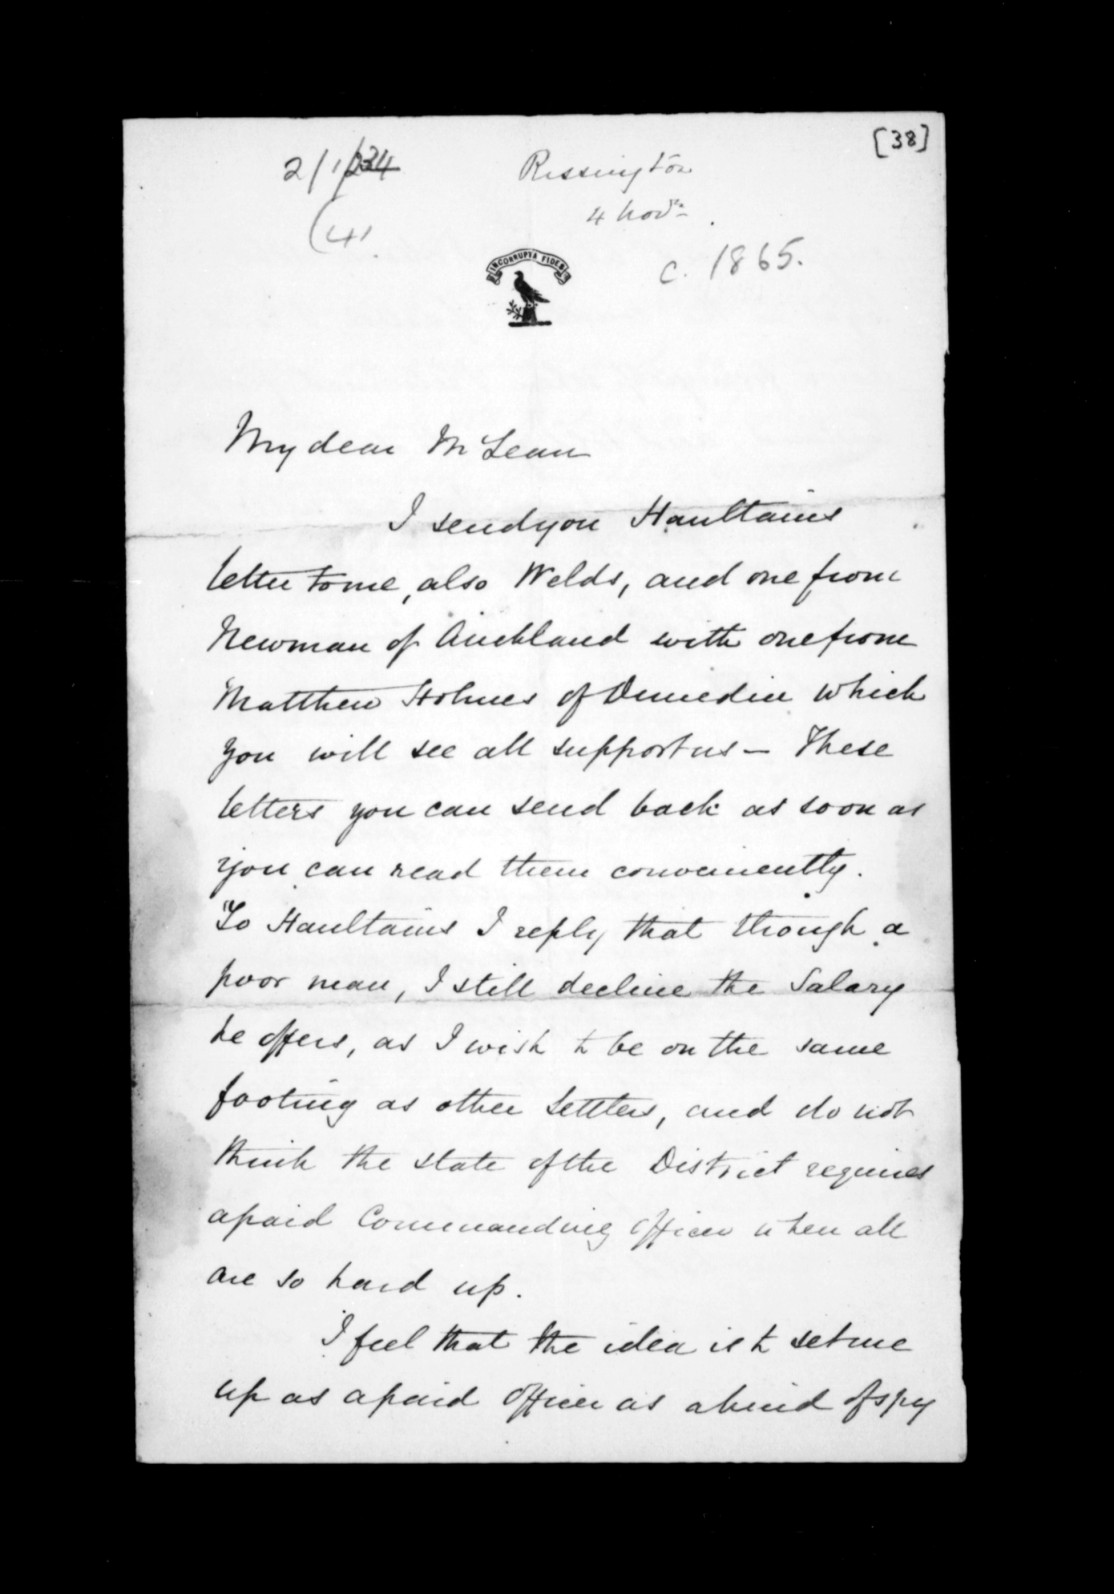 [38]
2/1/234
(4)
Rissington
4 Novr.
c. 1865.
INCORRUPTA FIDES
My dear McLean
I send you Haultains
letter to me, also Welds, and one from
Newman of Auckland with one from
Matthew Holmes of Dunedin which
you will see all support us — These
letters you can send back as soon as
you can read them conveniently.
To Haultains I reply that though a
poor man, I still decline the Salary
he offers, as I wish to be on the same
footing as other Settlers, and do not
think the state of the District requires
a paid Commanding Officer when all
are so hard up.
I feel that the idea is to set me
up as a paid Officer as a kind of spy